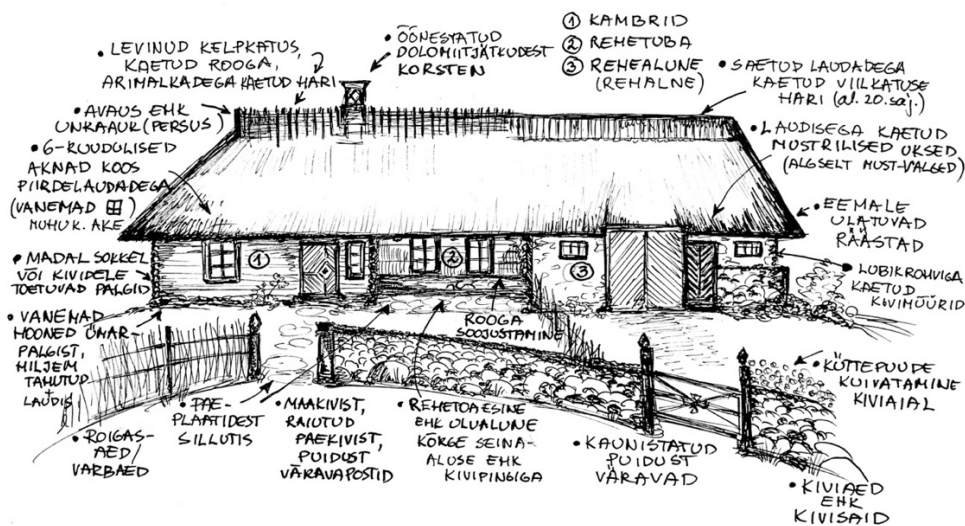 • LEVINUD KELPKATUS,
KAETUD ROOGA,
ARIMALKADEGA KAETUD HARI
• ÕÕNESTATUD
DOLOMIITJÄTKUDEST
KORSTEN
① KAMBRID
② REHETUBA
③ REHEALUNE
(REHALNE)
• SAETUD LAUDADEGA
KAETUD VIILKATUSE
HARI (al. 20.saj.)
• AVAUS EHK
UNKAAUK (PERSUS)
• 6-RUUDULISED
AKNAD KOOS
PIIRDELAUDADEGA
(VANEMAD ⊞)
MUHUK. AKE
• LAUDISEGA KAETUD
MUSTRILISED UKSED
(ALGSELT MUST-VALGED)
• EEMALE
ULATUVAD
RÄÄSTAD
• MADAL SOKKEL
VÕI KIVIDELE
TOETUVAD PALGID
①
②
③
• LUBIKROHVIGA
KAETUD
KIVIMÜÜRID
• VANEMAD
HOONED ÜMAR-
PALGIST,
HILJEM
TAHUTUD,
LAUDIS
ROOGA
SOOJUSTAMINE
• KÜTTEPUUDE
KUIVATAMINE
KIVIAIAL
• ROIGAS-
AED/
VARBAED
• PAE-
PLAATIDEST
SILLUTIS
• MAAKIVIST,
RAIUTUD
PAEKIVIST,
PUIDUST
VÄRAVAPOSTID
• REHETOAESINE
EHK ULUALUNE
KÕRGE SEINA-
ALUSE EHK
KIVIPINGIGA
• KAUNISTATUD
PUIDUST
VÄRAVAD
• KIVIAED
EHK
KIVISAID